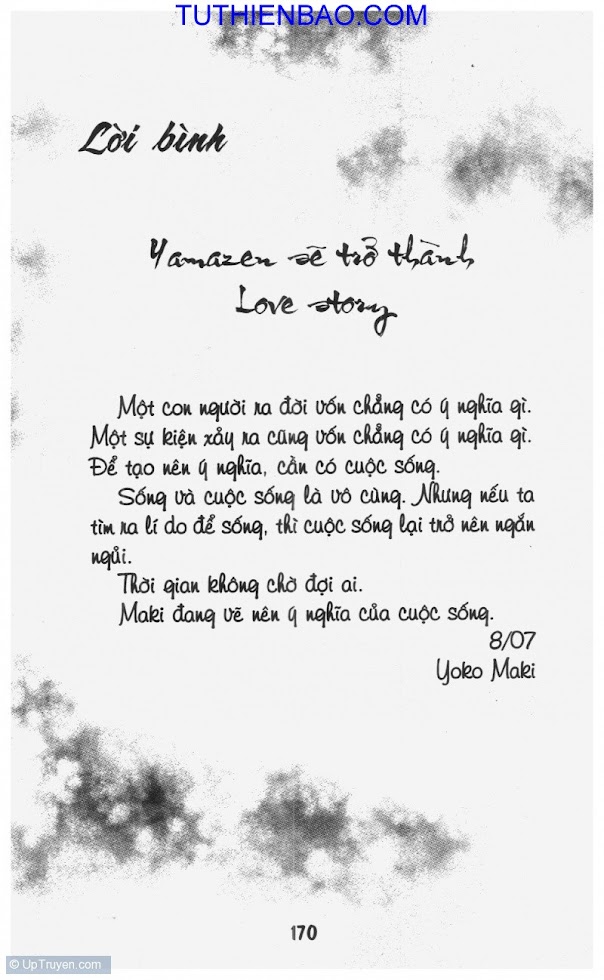 TUTHIENBAO.COM
Lời bình
Yamazen sẽ trở thành
Love story
Một con người ra đời vốn chẳng có ý nghĩa gì.
Một sự kiện xảy ra cũng vốn chẳng có ý nghĩa gì.
Để tạo nên ý nghĩa, cần có cuộc sống.
Sống và cuộc sống là vô cùng. Nhưng nếu ta
tìm ra lí do để sống, thì cuộc sống lại trở nên ngắn
ngủi.
Thời gian không chờ đợi ai.
Maki đang vẽ nên ý nghĩa của cuộc sống.
8/07
Yoko Maki
170
© UpTruyen.com